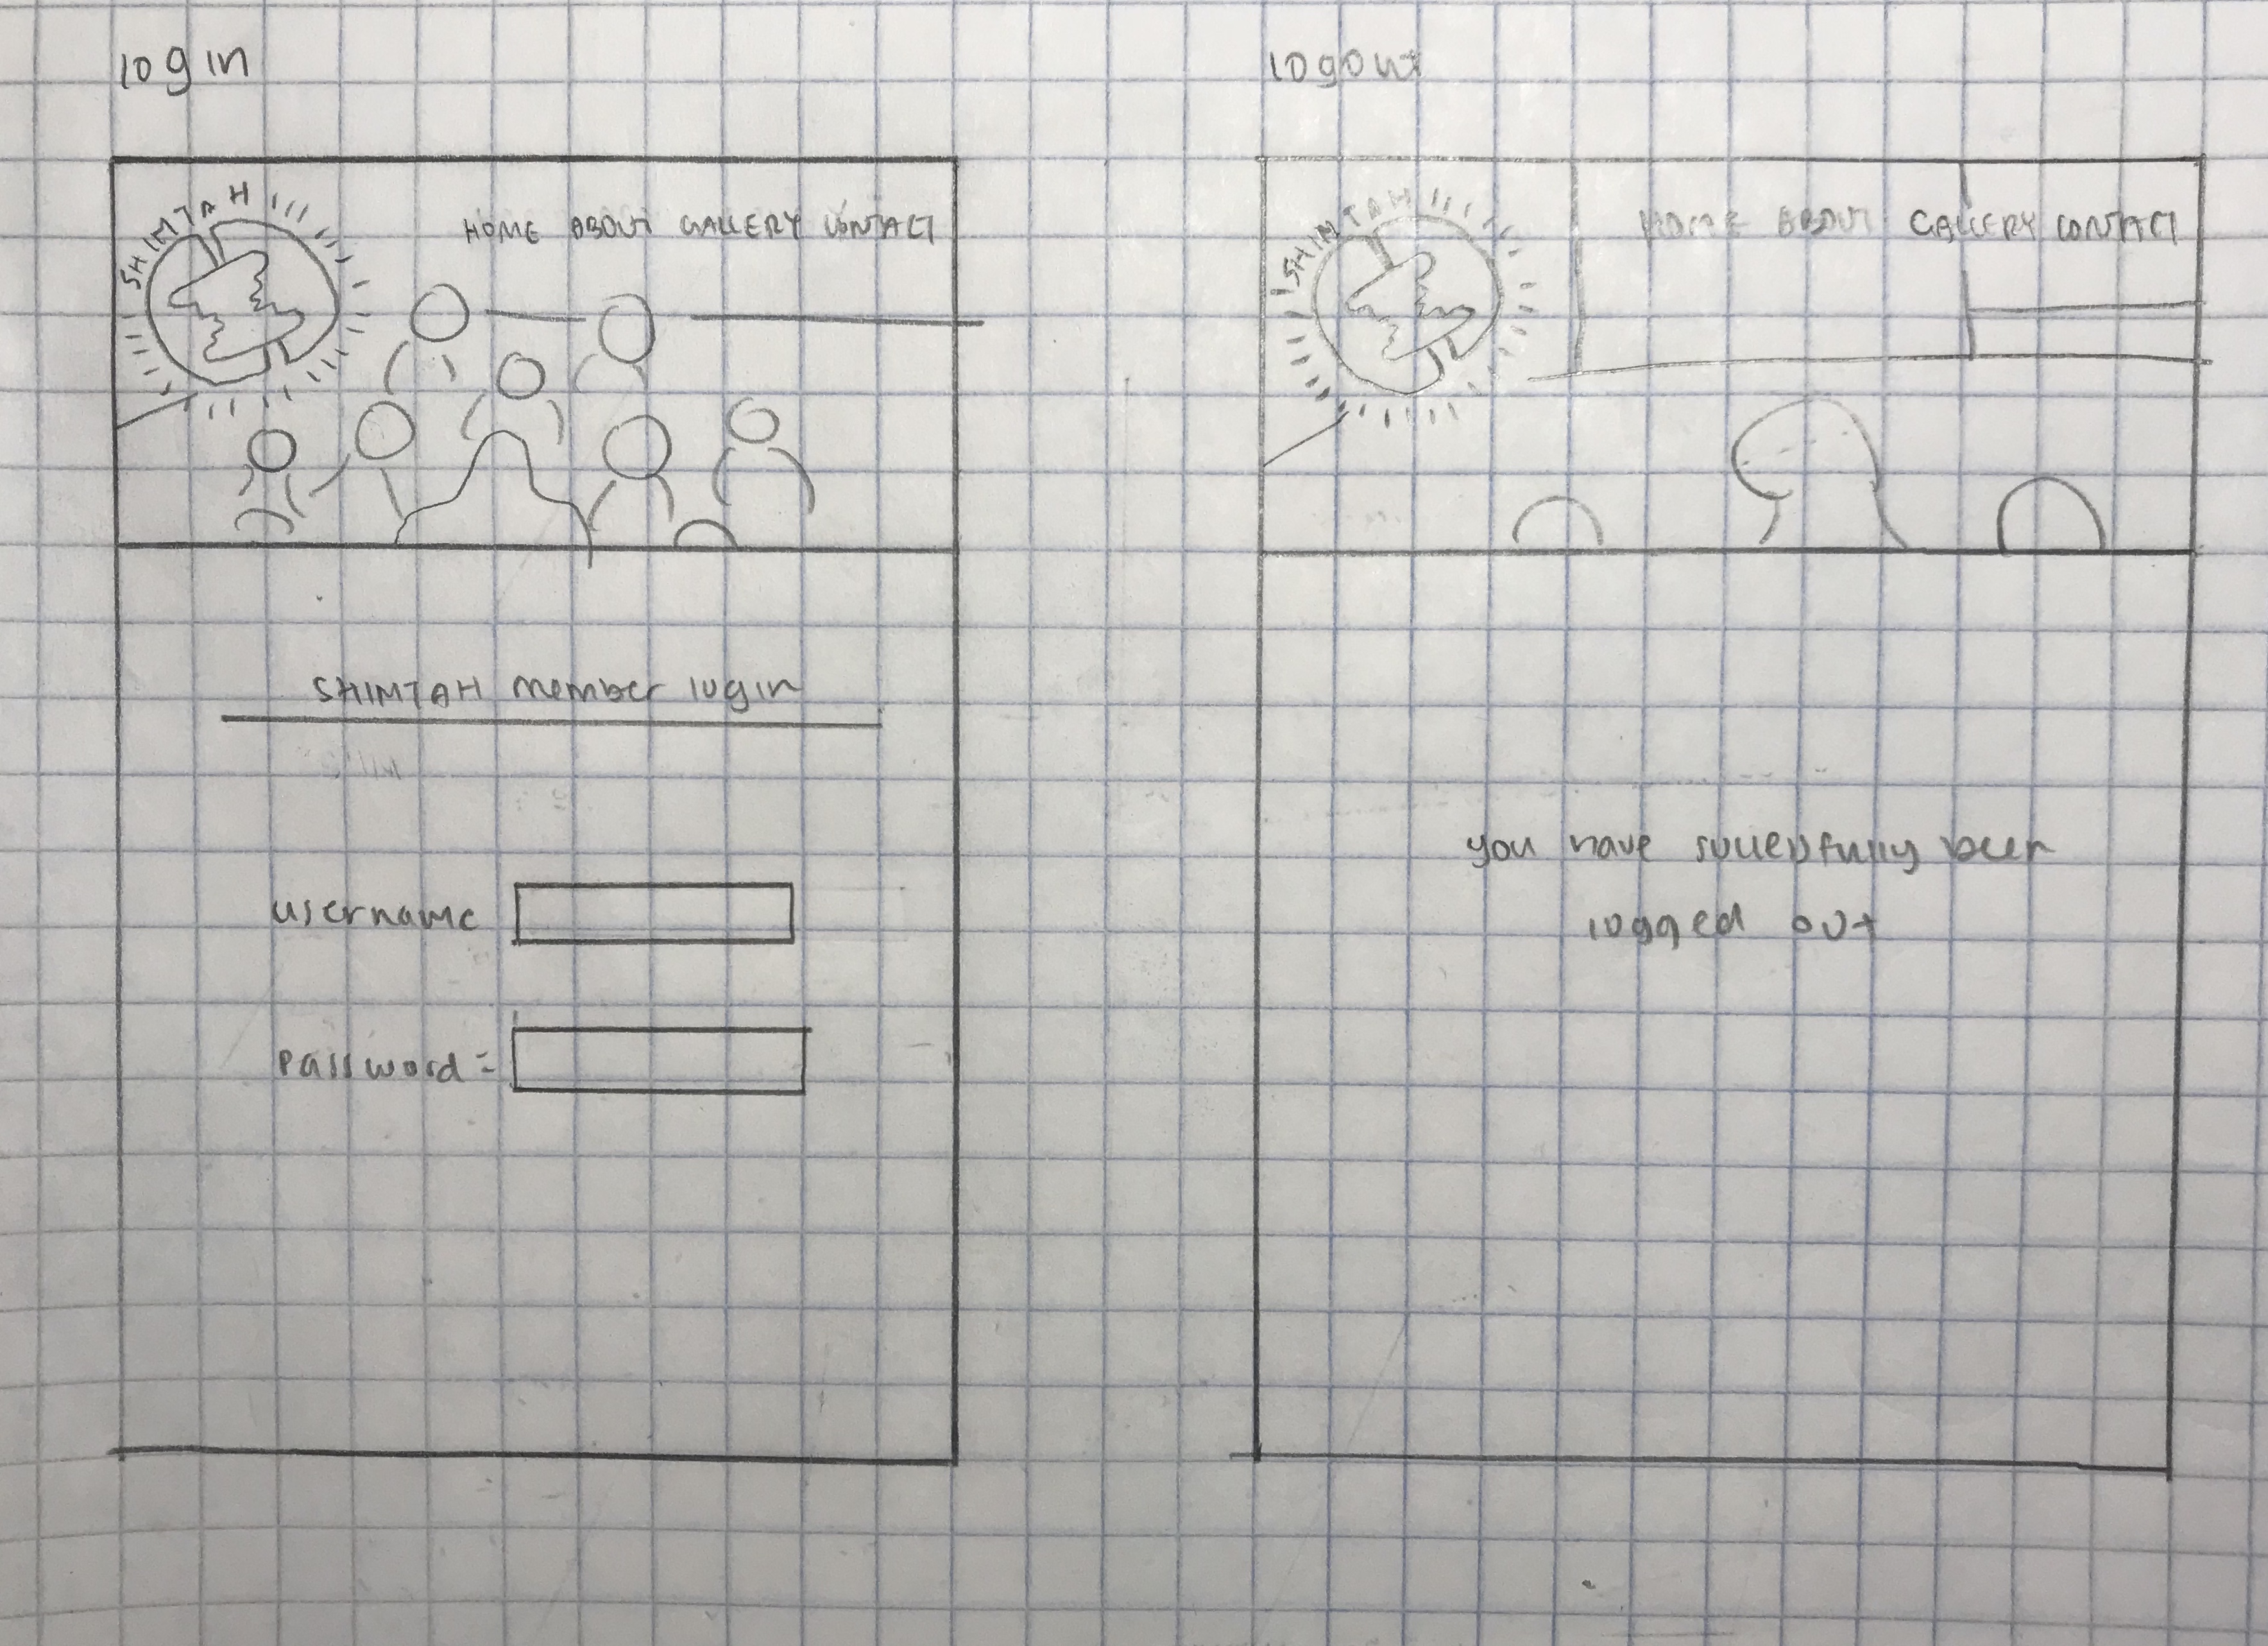 login
SHIMTAH
HOME ABOUT GALLERY CONTACT
SHIMTAH member login
username
password:
logout
SHIMTAH
HOME ABOUT GALLERY CONTACT
you have succesfully been
logged out